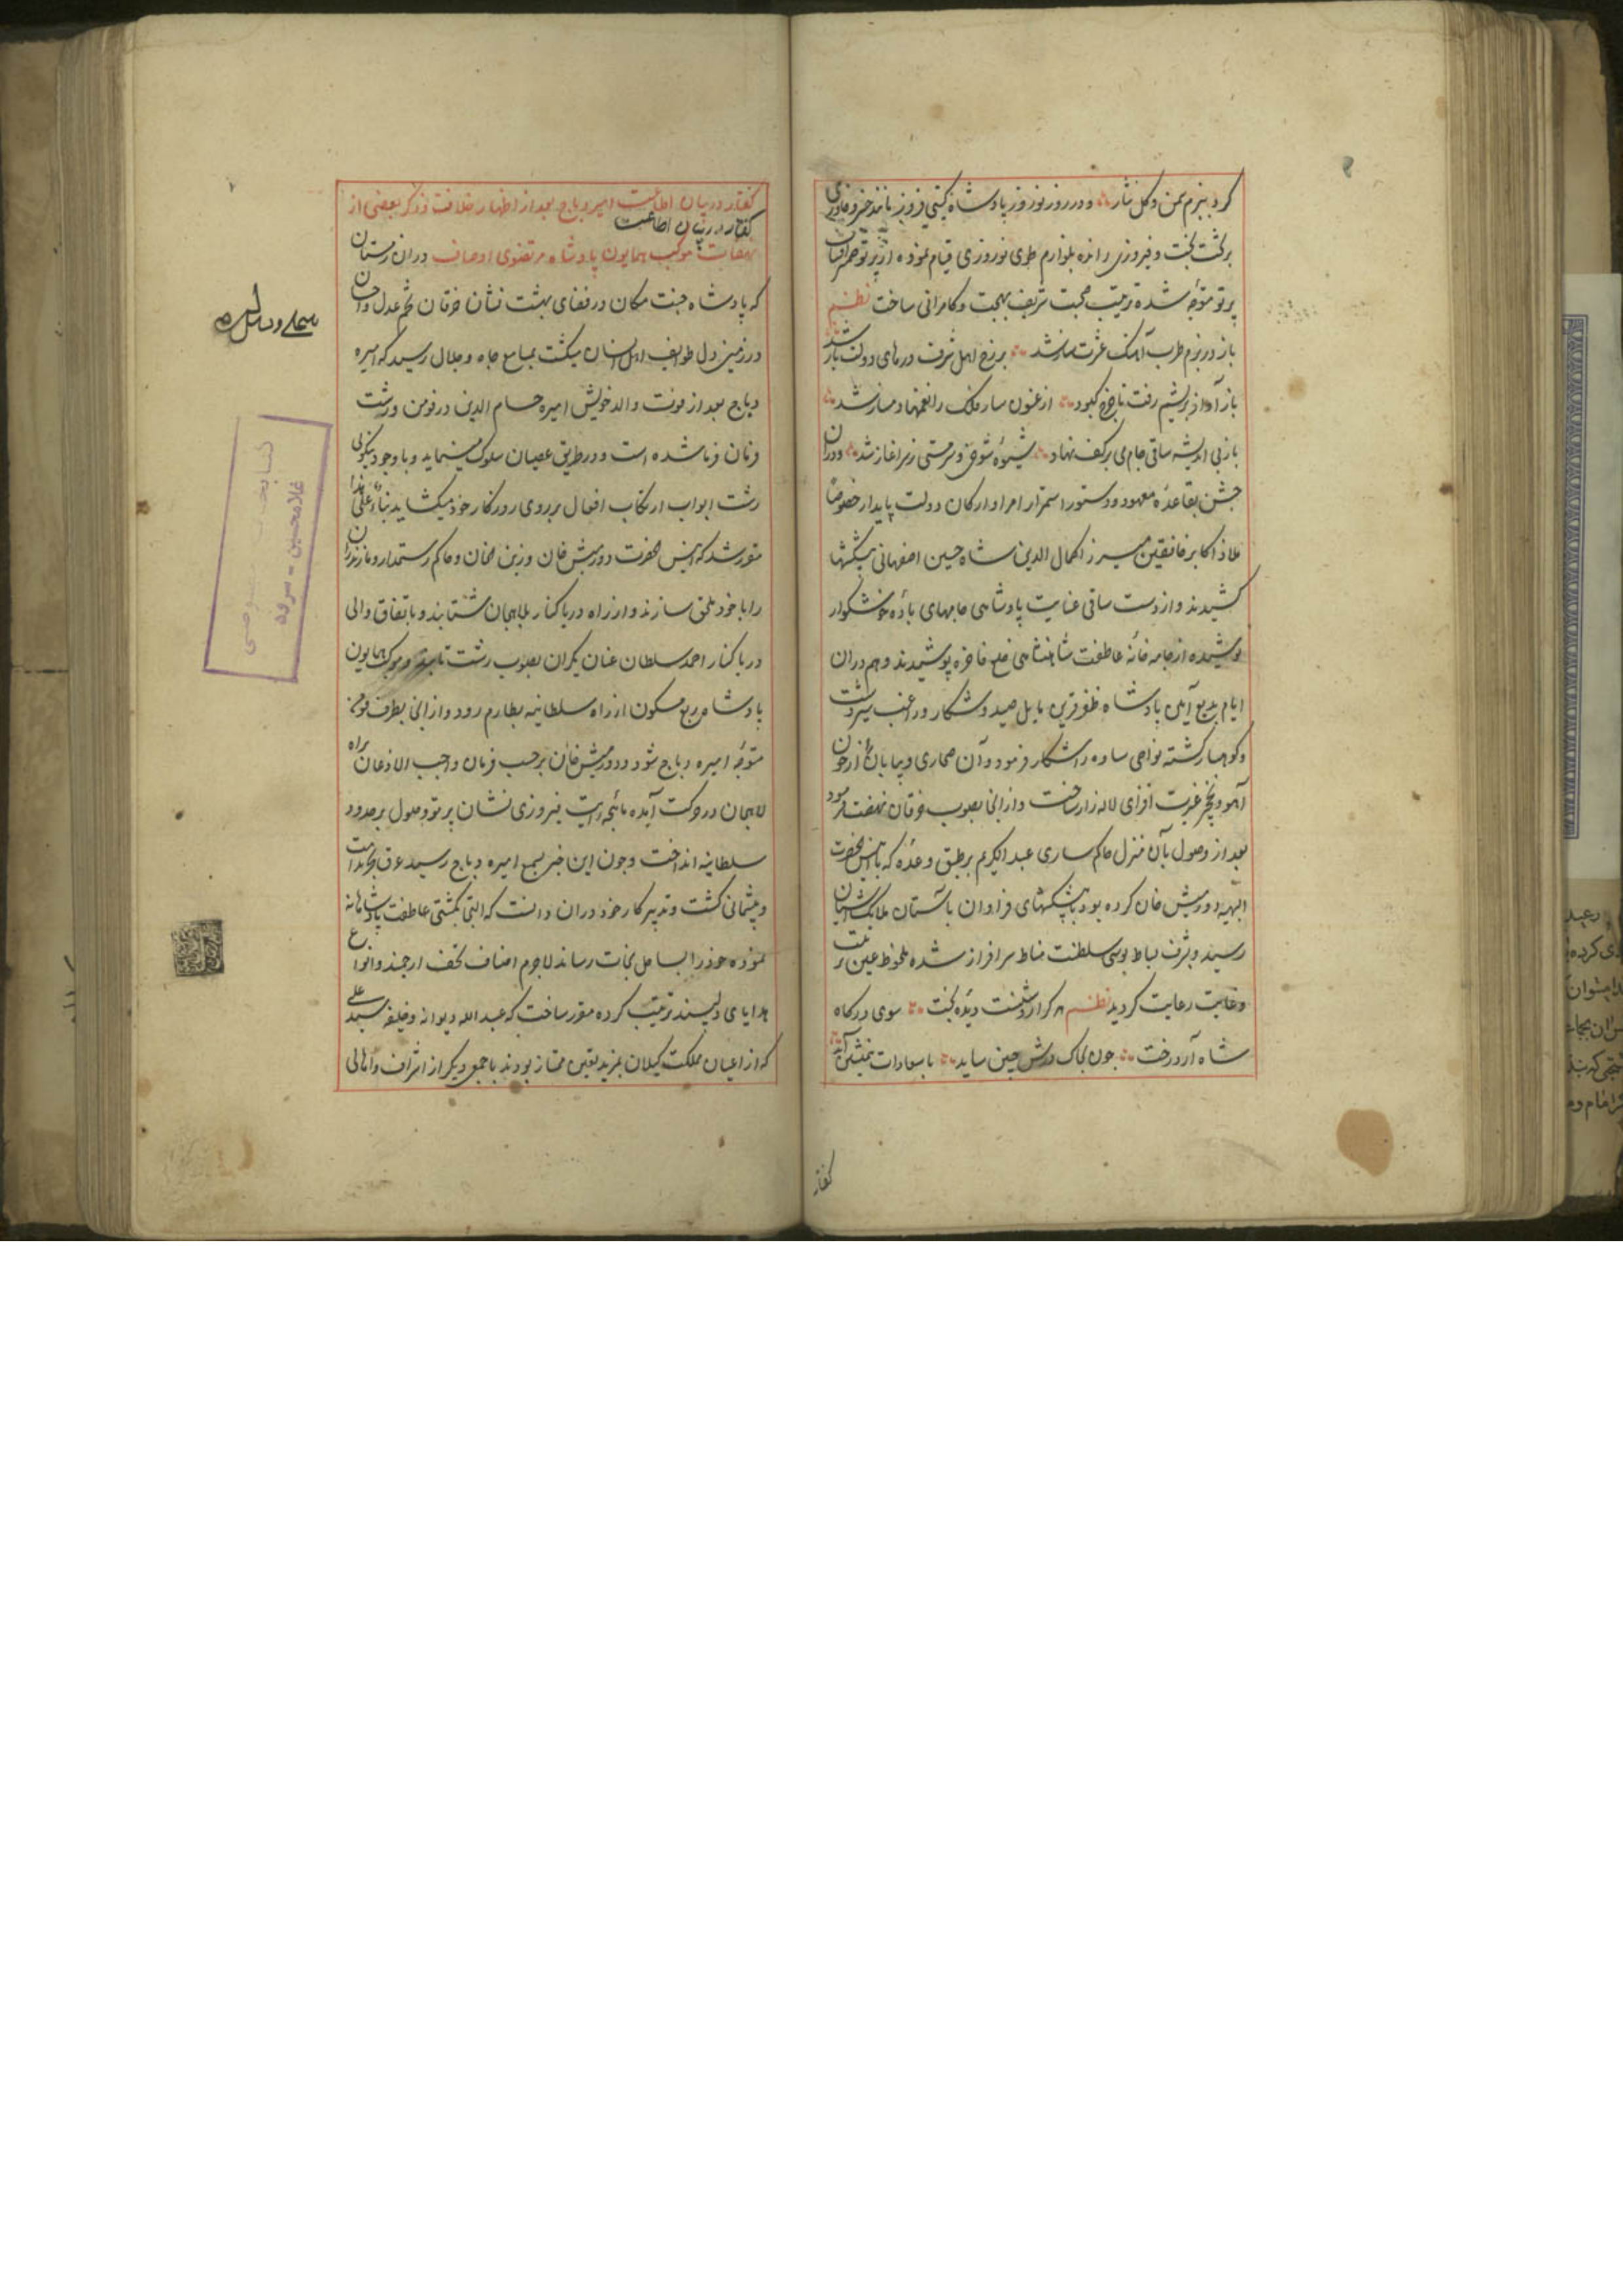 کرد ببزم سمن و گل نثار و در روز نوروز پادشاه گیتی فروز مانند خسرو خاوری
بر تخت بخت و فیروزی رانده بلوازم طوی نوروزی قیام نموده از پرتو
پرتو متوجه شده ترتیب صحبت شریف بهجت و کامرانی ساخت نظم
باز در بزم طرب آهنگ عشرت ساز شد بر رخ اهل شرف درهای دولت باز شد
باز آواز بریشم رفت تا چرخ کبود ارغنون ساز فلک را نغمها دمساز شد
باز بی اندیشه ساقی جام می بر کف نهاد شیوه شوخی و سرمستی ز سر اغاز شد و در آن
جشن بقاعده معهود و دستور استمرار امرا و ارکان دولت پایدار خصوصا
ملاذ اکابر خافقین میرزا کمال الدین شاه حسین اصفهانی پیشکشها
کشیدند و از دست ساقی عنایت پادشاهی جامهای باده خوشگوار
نوشیده از جامه خانه عاطفت شاهنشاهی خلع فاخره پوشیدند و هم در آن
ایام بدیع آیین پادشاه ظفر قرین مایل صید و شکار و راغب سیر دشت
و کوهسار گشته نواحی ساوه را شکار فرمود و آن صحاری و بیابان را از خون
آهو و نخجیر غیرت افزای لاله زار ساخت و از انجا بصوب خرقان نهضت فرمود
بعد از وصول بآن منزل حاکم ساری عبد الکریم بر طبق وعده که با انیس الحضرت
البهیه دورمیش خان کرده بود با پیشکشهای فراوان باستان ملایک آشیان
رسید و بشرف بساط بوسی سلطنت مناط سرافراز شده ملحوظ عین تربیت
و غایت رعایت کردید نظم هر کرا روشنست دیده بخت سوی درگاه
شاه آرد رخت چون بخاک درش جبین ساید با سعادات همنشین آید
گفتار
گفتار در بیان اطاعت امیره دباج بعد از اظهار خلافت و ذکر بعضی از
گفتار در بیان اطاعت
نهضات موکب همایون پادشاه مرتضوی اوصاف در آن زمستان
که پادشاه جنت مکان در فضای بهشت نشان خرقان تخم عدل و احسان
در زمین دل طوایف انسان میکشت بمسامع جاه و جلال رسید که امیره
دباج بعد از فوت والد خویش امیره حسام الدین در فومن و رشت
فرمان فرما شده است و در طریق عصیان سلوک مینماید و با وجود بنکوبی
رشت ابواب ارتکاب افعال بر روی روزگار خود میکشاید بناء علی هذا
مقرر شد که انیس الحضرت دورمیش خان و زینل خان و حاکم رستمدار و مازندران
را با خود ملحق سازند و از راه دریا کنار بلاهیجان شتابند و باتفاق والی
دریا کنار احمد سلطان عنان یکران بصوب رشت تابند و موکب همایون
پادشاه ربع مسکون از راه سلطانیه بطارم رود و از انجا بطرف فومن
متوجه امیره دباج شود و دورمیش خان بر حسب فرمان واجب الاذعان براه
لاهیجان در حرکت آمده ماهچه رایت فیروزی نشان پرتو وصول بر حدود
سلطانیه انداخت و چون این خبر بسمع امیره دباج رسید غرق بحر ندامت
و پشمانی گشت و تدبیر کار خود در آن دانست که التجا بکشتی عاطفت پادشاهانه
نموده خود را بساحل نجات رساند لاجرم اصناف تحف ارجمند و انواع
هدایای دلپسند ترتیب کرده مقرر ساخت که عبد الله دیوانه و خلیفه سید علی
که از اعیان مملکت گیلان بمزید تعین ممتاز بودند با جمعی دیگر از اشراف و اهالی
کتابخانه
غلامحسین - سرود